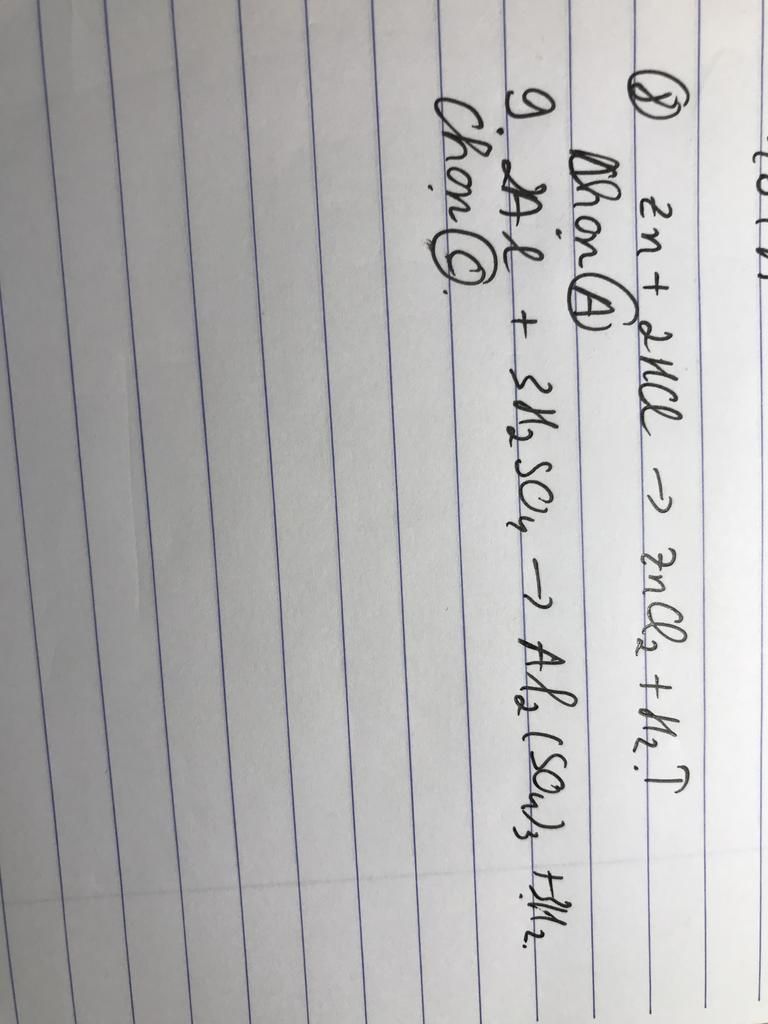 ⑧ Zn + 2HCl → ZnCl₂ + H₂↑
Chọn Ⓐ
9. 2Al + 3H₂SO₄ → Al₂(SO₄)₃ + 3H₂.
Chọn Ⓒ.